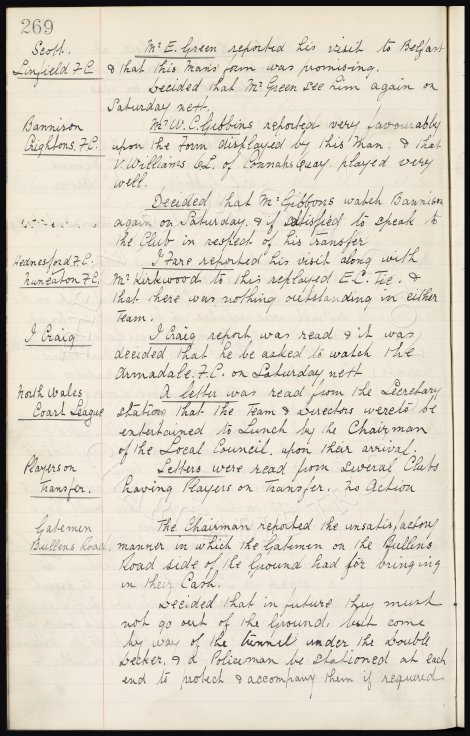 269
Scott.
Linfield F.C
Mr E. Green reported his visit to Belfast
& that this mans form was promising.
Decided that Mr Green see him again on
Saturday nett.
Bannison
Crightons. F.C.
Mr W. C. Gibbins reported very favourably
upon the form displayed by this man. & that
V. Williams O.L. of Connahs Quay. played very
well.
Decided that Mr Gibbons watch Bannison
again on Saturday. & if satisfied to speak to
the Club in respect of his transfer
Hednesford F.C.
Nuneaton F.C.
I Fare reported his visit along with
Mr Kirkwood to this replayed E.C. Tie. &
that there was nothing outstanding in either
Team.
I Craig
I Craig report was read & it was
decided that he be asked to watch the
Armadale. F.C. on Saturday nett
North Wales
Coast League
A letter was read from the Secretary
stating that the Team & Directors were to be
entertained to Lunch by the Chairman
of the Local Council. upon their arrival.
Players on
Transfer.
Letters were read from several Clubs
having Players on Transfer. no Action
Gatemen
Bullens Road.
The Chairman reported the unsatisfactory
manner in which the Gatemen on the Bullens
Road side of the Ground had for bringing
in their Cash.
Decided that in future they must
not go out of the Ground, but come
by way of the tunnel under the Double
Decker, & a Policeman be stationed at each
end to protect & accompany them if required